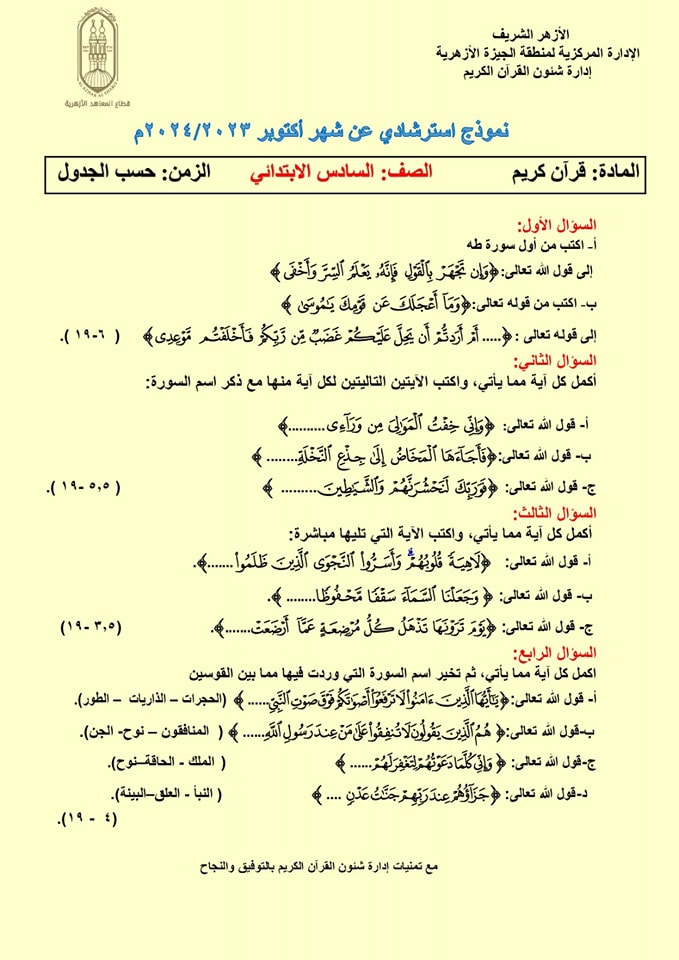 الأزهر الشريف
الإدارة المركزية لمنطقة الجيزة الأزهرية
إدارة شئون القرآن الكريم
قطاع المعاهد الأزهرية
نموذج استرشادي عن شهر أكتوبر ٢٠٢٤/٢٠٢٣م
المادة: قرآن كريم الصف: السادس الابتدائي الزمن: حسب الجدول
السؤال الأول:
أ- اكتب من أول سورة طه
إلى قول الله تعالى: ﴿وَإِن تَجْهَرْ بِالْقَوْلِ فَإِنَّهُۥ يَعْلَمُ السِّرَّ وَأَخْفَى ﴾
ب- اكتب من قوله تعالى: ﴿وَمَآ أَعْجَلَكَ عَن قَوْمِكَ يَٰمُوسَىٰ ﴾
إلى قوله تعالى : ﴿..... أَمْ أَرَدتُّمْ أَن يَحِلَّ عَلَيْكُمْ غَضَبٌ مِّن رَّبِّكُمْ فَأَخْلَفْتُم مَّوْعِدِى﴾ ( ٦- ١٩ ).
السؤال الثاني:
أكمل كل آية مما يأتي، واكتب الآيتين التاليتين لكل آية منها مع ذكر اسم السورة:
أ- قول الله تعالى: ﴿وَإِنِّى خِفْتُ الْمَوَٰلِىَ مِن وَرَآءِى..........﴾
ب- قول الله تعالى: ﴿فَأَجَآءَهَا الْمَخَاضُ إِلَىٰ جِذْعِ النَّخْلَةِ........ ﴾
ج- قول الله تعالى: ﴿ فَوَرَبِّكَ لَنَحْشُرَنَّهُمْ وَالشَّيَٰطِينَ......... ﴾ ( ٥,٥ - ١٩ ).
السؤال الثالث:
أكمل كل آية مما يأتي، واكتب الآية التي تليها مباشرة:
أ- قول الله تعالى: ﴿لَاهِيَةً قُلُوبُهُمْ ۗ وَأَسَرُّوا۟ النَّجْوَى الَّذِينَ ظَلَمُوا۟.......﴾.
ب- قول الله تعالى: ﴿ وَجَعَلْنَا السَّمَآءَ سَقْفًا مَّحْفُوظًا........ ﴾.
ج- قول الله تعالى: ﴿يَوْمَ تَرَوْنَهَا تَذْهَلُ كُلُّ مُرْضِعَةٍ عَمَّآ أَرْضَعَتْ.......﴾. (٣,٥ - ١٩)
السؤال الرابع:
اكمل كل آية مما يأتي، ثم تخير اسم السورة التي وردت فيها مما بين القوسين
أ- قول الله تعالى: ﴿يَٰٓأَيُّهَا الَّذِينَ ءَامَنُوا۟ لَا تَرْفَعُوٓا۟ أَصْوَٰتَكُمْ فَوْقَ صَوْتِ النَّبِىِّ...... ﴾ (الحجرات – الذاريات – الطور).
ب- قول الله تعالى: ﴿ هُمُ الَّذِينَ يَقُولُونَ لَا تُنفِقُوا۟ عَلَىٰ مَنْ عِندَ رَسُولِ اللَّهِ...... ﴾ ( المنافقون – نوح- الجن).
ج- قول الله تعالى: ﴿ وَإِنِّى كُلَّمَا دَعَوْتُهُمْ لِتَغْفِرَ لَهُمْ...... ﴾ ( الملك - الحاقة–نوح).
د- قول الله تعالى: ﴿جَزَآؤُهُمْ عِندَ رَبِّهِمْ جَنَّٰتُ عَدْنٍ .... ﴾ ( النبأ - العلق–البينة).
( ٤ - ١٩).
مع تمنيات إدارة شئون القرآن الكريم بالتوفيق والنجاح